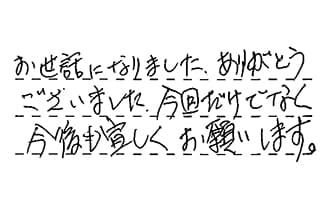 お世話になりました、ありがとう
ございました、今回だけでなく
今後も宜しくお願いします。